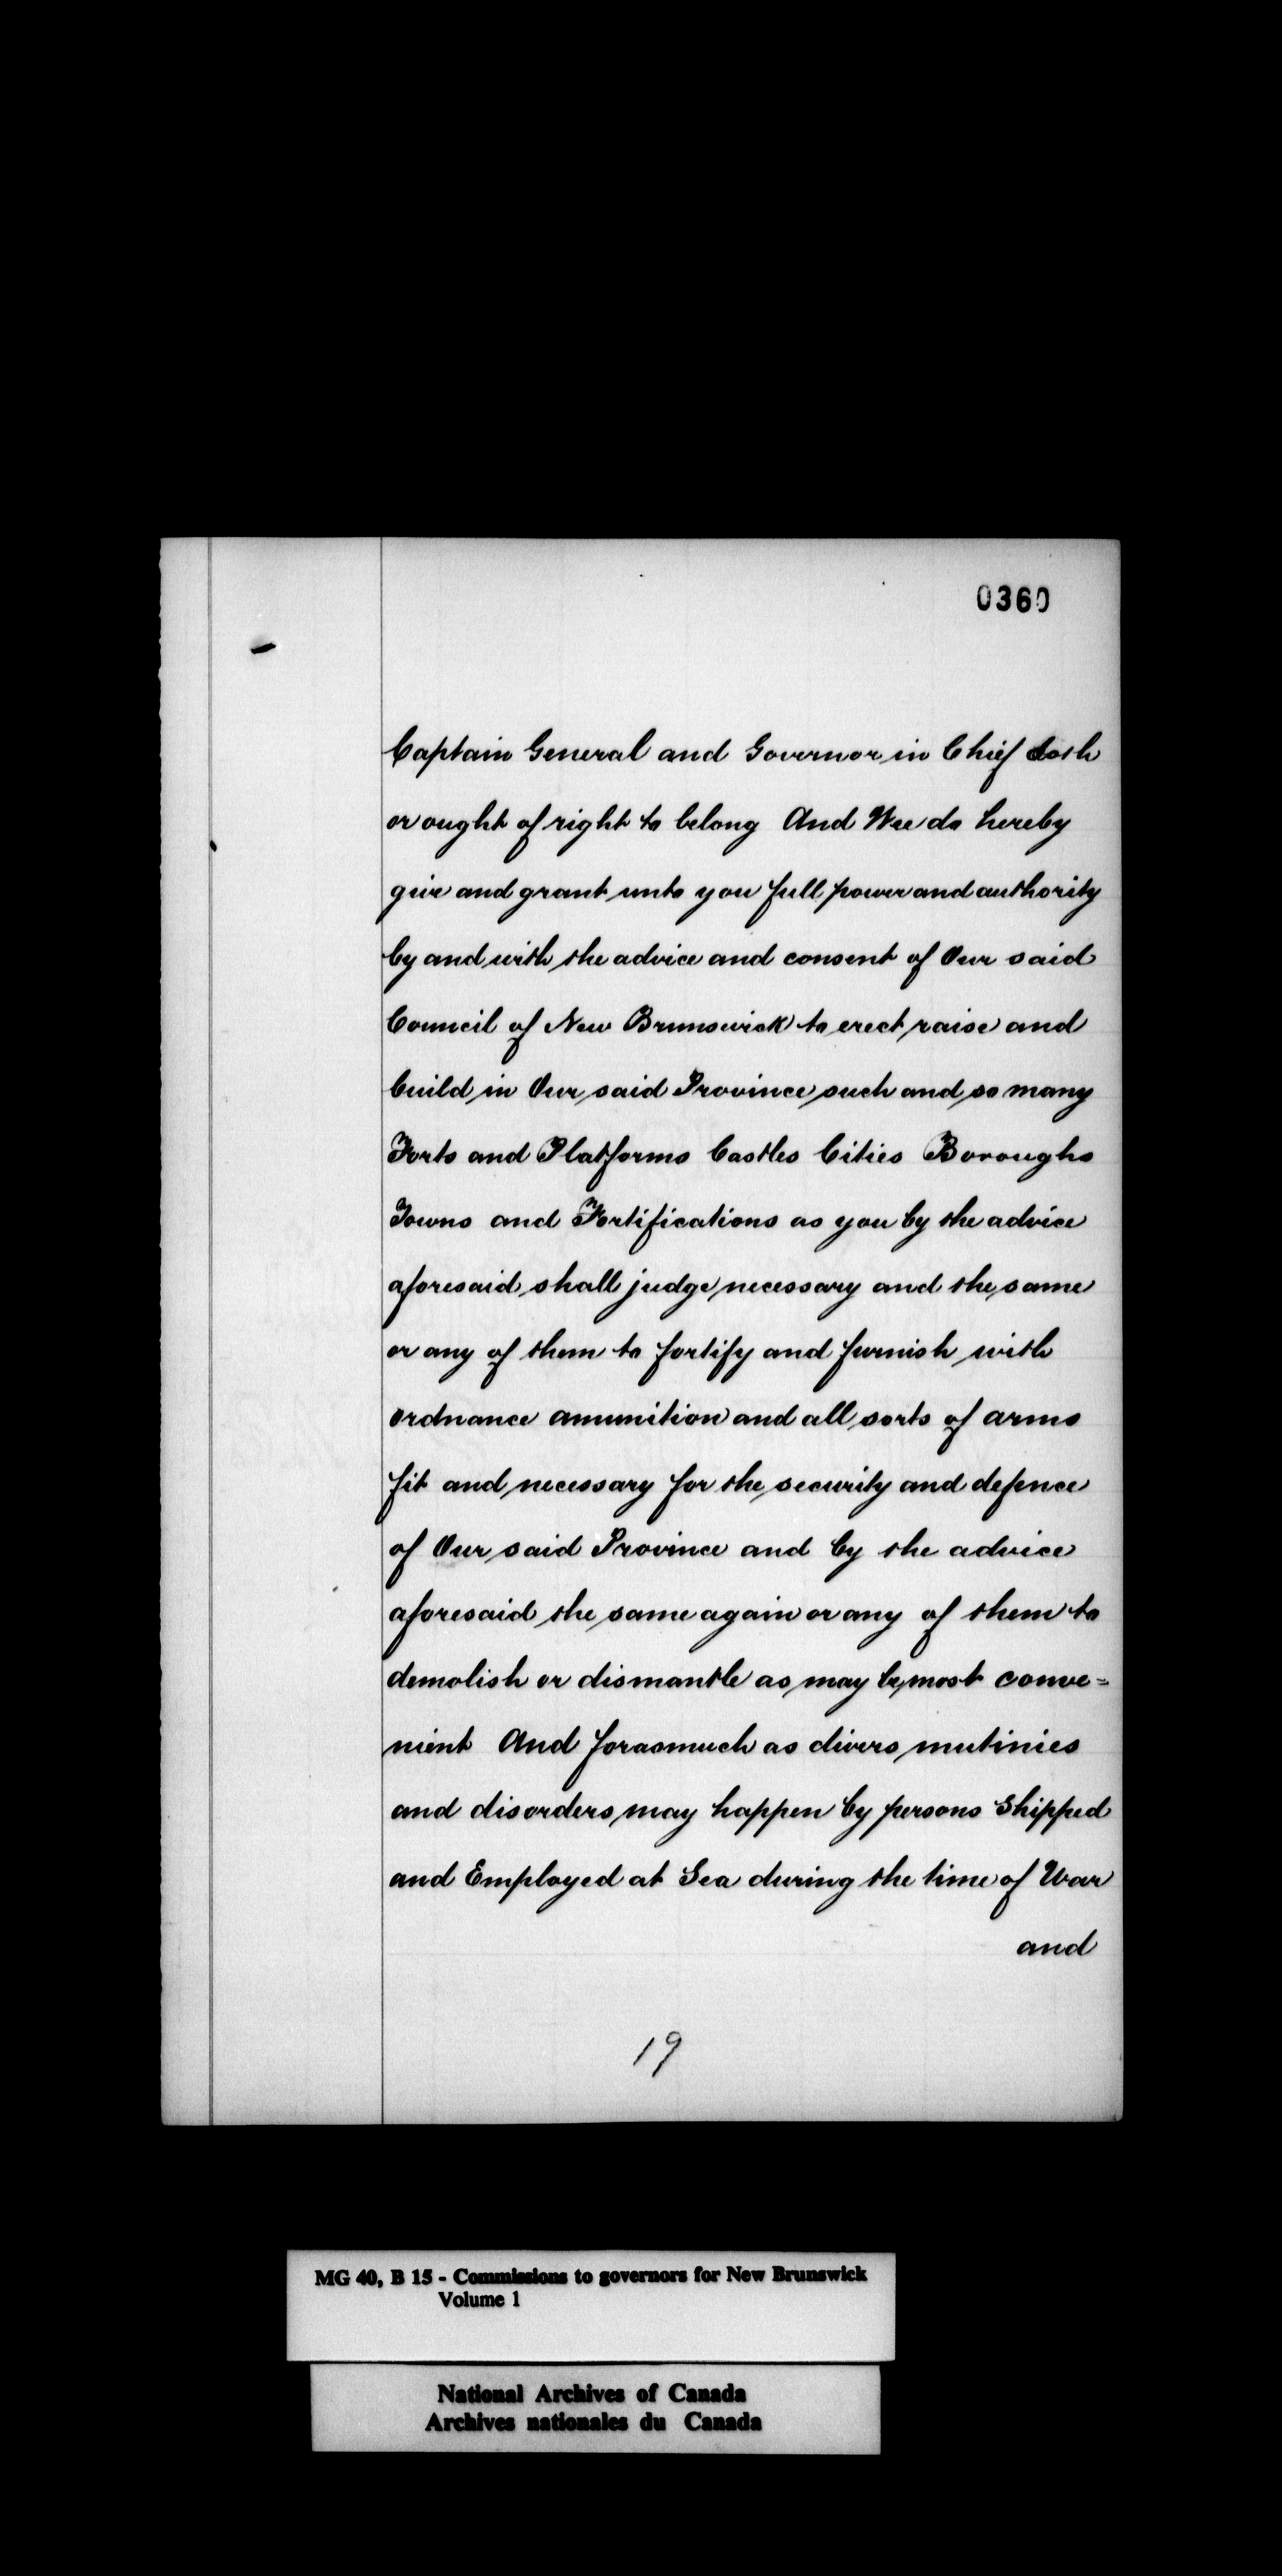 0360
Captain General and Governor in Chief doth
or ought of right to belong And Wee do hereby
give and grant unto you full power and authority
by and with the advice and consent of Our said
Council of New Brunswick to erect raise and
build in Our said Province such and so many
Forts and Platforms Castles Cities Boroughs
Towns and Fortifications as you by the advice
aforesaid shall judge necessary and the same
or any of them to fortify and furnish with
ordnance amunition and all sorts of arms
fit and necessary for the security and defence
of Our said Province and by the advice
aforesaid the same again or any of them to
demolish or dismantle as may be most conve=
nient And forasmuch as divers mutinies
and disorders may happen by persons Shipped
and Employed at Sea during the time of War
and
19
MG 40, B 15 - Commissions to governors for New Brunswick
Volume 1
National Archives of Canada
Archives nationales du Canada